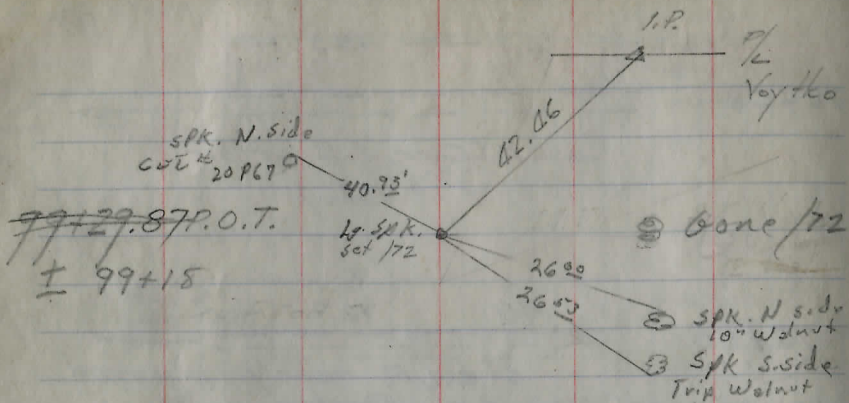 I.P.
P/L
Voytko
42.46
SPK. N. side
20 P67
40.93'
99+29.87 P.O.T.
± 99+18
Lg. Spk.
set /72
Gone /72
26 00
26 53
SPK. N side
10" Walnut
SPK S. side
Trip Walnut